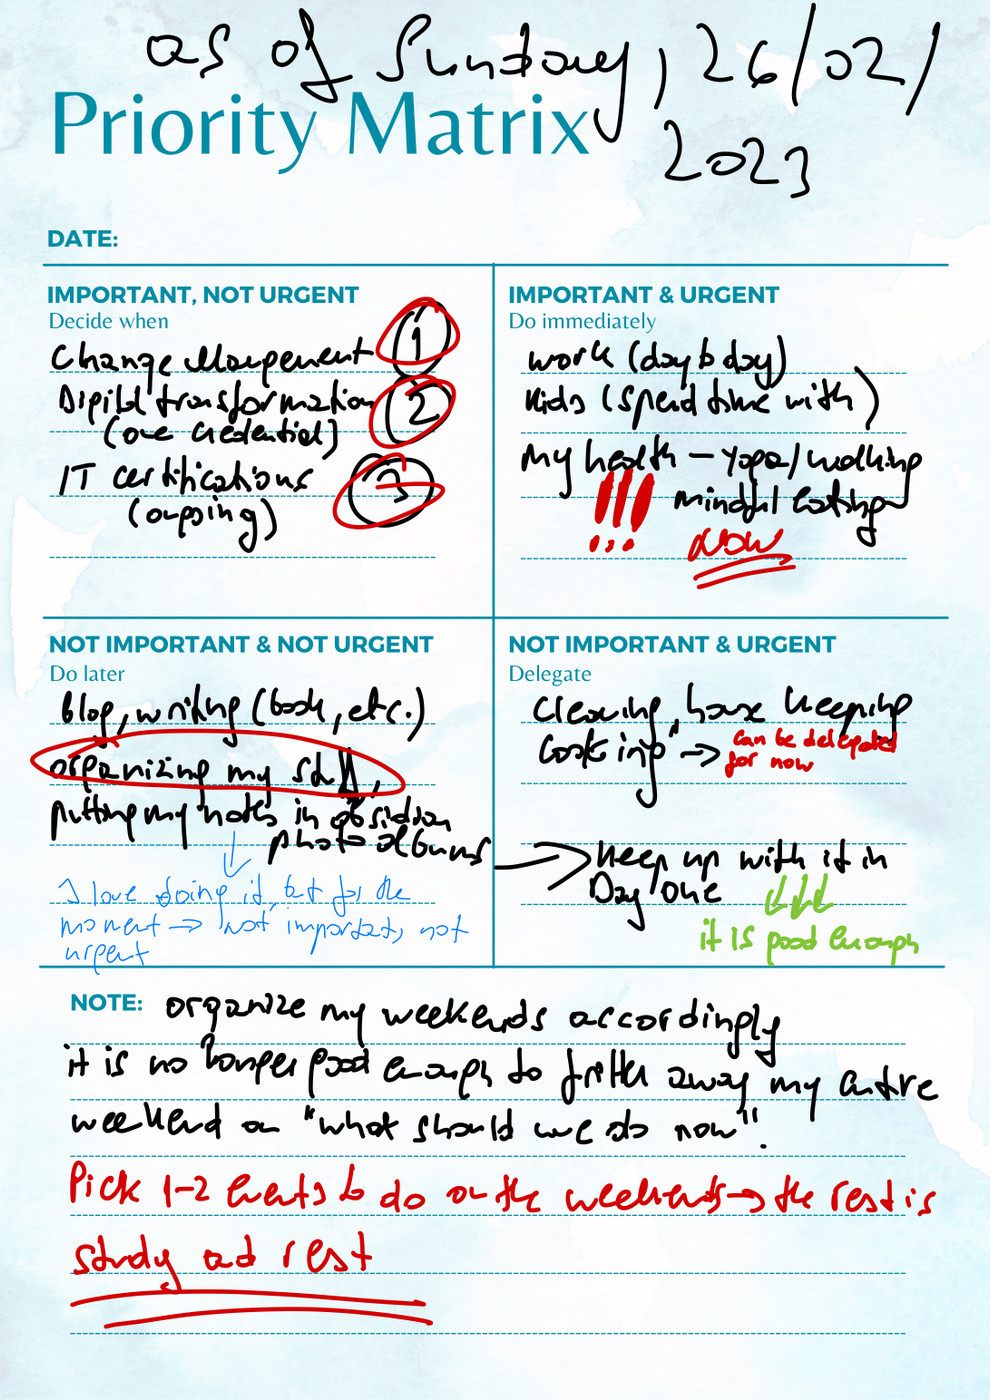 as of Sunday, 26/02/
2023
Priority Matrix
DATE:
IMPORTANT, NOT URGENT
Decide when
Change Management 1
Digital transformation 2
(one credential)
IT certifications 3
(ongoing)
IMPORTANT & URGENT
Do immediately
work (day b day)
Kids (spend time with)
My health – yoga/walking
!!! mindful eating
NOW
NOT IMPORTANT & NOT URGENT
Do later
blog, writing (book, etc.)
organizing my stuff,
putting my notes in obsidian
photo albums
I love doing it, but for the
moment → not important, not
urgent
NOT IMPORTANT & URGENT
Delegate
Cleaning, house keeping
Cooking → can be delegated
for now
keep up with it in
Day One
it is good enough
NOTE: organize my weekends accordingly
it is no longer good enough to fritter away my entire
weekend on "what should we do now".
Pick 1-2 events to do on the weekends → the rest is
study and rest